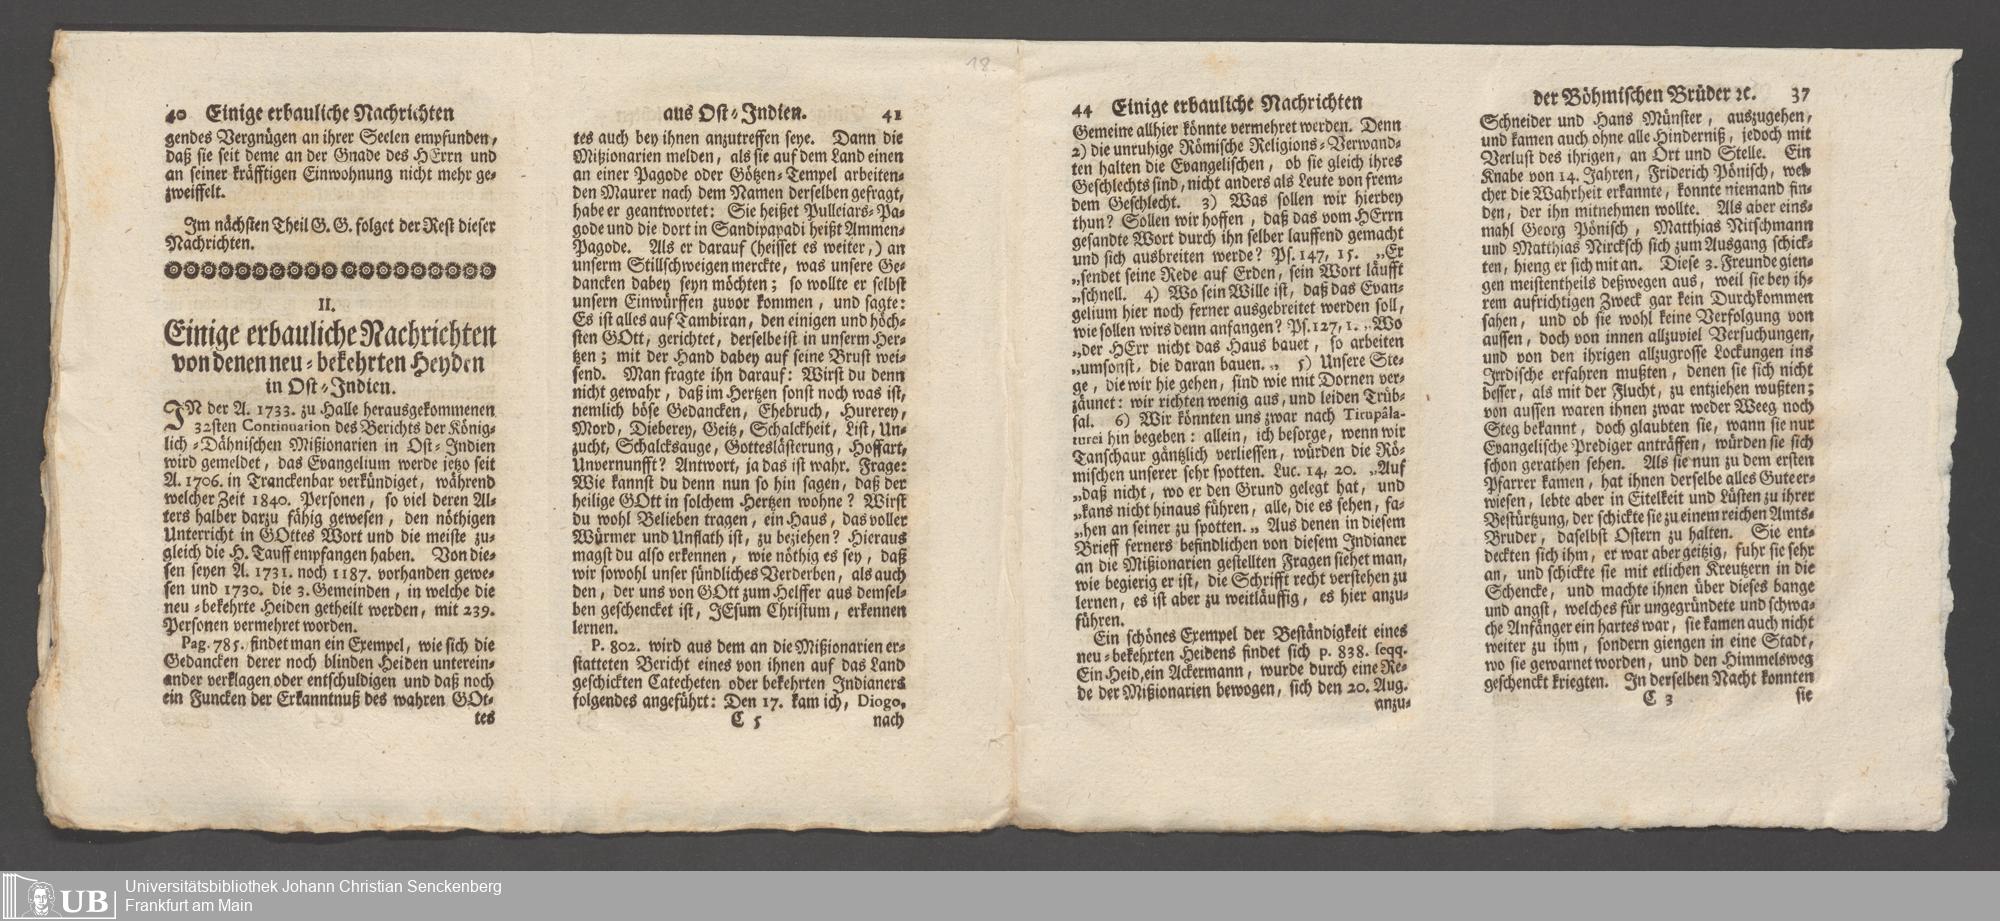 18.
40 Einige erbauliche Nachrichten
gendes Vergnügen an ihrer Seelen empfunden,
daß sie seit deme an der Gnade des HErrn und
an seiner kräfftigen Einwohnung nicht mehr ge-
zweiffelt.
Im nächsten Theil G. G. folget der Rest dieser
Nachrichten.
II.
Einige erbauliche Nachrichten
von denen neu-bekehrten Heyden
in Ost-Indien.
IN der A. 1733. zu Halle herausgekommenen
32sten Continuation des Berichts der König-
lich-Dähnischen Mißionarien in Ost-Indien
wird gemeldet, das Evangelium werde jetzo seit
A. 1706. in Tranckenbar verkündiget, während
welcher Zeit 1840. Personen, so viel deren Al-
ters halber darzu fähig gewesen, den nöthigen
Unterricht in GOttes Wort und die meiste zu-
gleich die H. Tauff empfangen haben. Von die-
sen seyen A. 1731. noch 1187. vorhanden gewe-
sen und 1730. die 3. Gemeinden, in welche die
neu-bekehrte Heiden getheilt werden, mit 239.
Personen vermehret worden.
Pag. 785. findet man ein Exempel, wie sich die
Gedancken derer noch blinden Heiden unterein-
ander verklagen oder entschuldigen und daß noch
ein Funcken der Erkanntnuß des wahren GOt-
tes
aus Ost-Indien. 41
tes auch bey ihnen anzutreffen seye. Dann die
Mißionarien melden, als sie auf dem Land einen
an einer Pagode oder Götzen-Tempel arbeiten-
den Maurer nach dem Namen derselben gefragt,
habe er geantwortet: Sie heißet Pulleiars-Pa-
gode und die dort in Sandipapadi heißt Ammen-
Pagode. Als er darauf (heisset es weiter,) an
unserm Stillschweigen merckte, was unsere Ge-
dancken dabey seyn möchten; so wollte er selbst
unsern Einwürffen zuvor kommen, und sagte:
Es ist alles auf Tambiran, den einigen und höch-
sten GOtt, gerichtet, derselbe ist in unserm Her-
tzen; mit der Hand dabey auf seine Brust wei-
send. Man fragte ihn darauf: Wirst du denn
nicht gewahr, daß im Hertzen sonst noch was ist,
nemlich böse Gedancken, Ehebruch, Hurerey,
Mord, Dieberey, Geitz, Schalckheit, List, Un-
zucht, Schalcksauge, Gotteslästerung, Hoffart,
Unvernunfft? Antwort, ja das ist wahr. Frage:
Wie kannst du denn nun so hin sagen, daß der
heilige GOtt in solchem Hertzen wohne? Wirst
du wohl Belieben tragen, ein Haus, das voller
Würmer und Unflath ist, zu beziehen? Hieraus
magst du also erkennen, wie nöthig es sey, daß
wir sowohl unser sündliches Verderben, als auch
den, der uns von GOtt zum Helffer aus demsel-
ben geschencket ist, JEsum Christum, erkennen
lernen.
P. 802. wird aus dem an die Mißionarien er-
statteten Bericht eines von ihnen auf das Land
geschickten Catecheten oder bekehrten Indianers
folgendes angeführt: Den 17. kam ich, Diogo,
C 5 nach
44 Einige erbauliche Nachrichten
Gemeine allhier könnte vermehret werden. Denn
2) die unruhige Römische Religions-Verwand-
ten halten die Evangelischen, ob sie gleich ihres
Geschlechts sind, nicht anders als Leute von frem-
dem Geschlecht. 3) Was sollen wir hierbey
thun? Sollen wir hoffen, daß das vom HErrn
gesandte Wort durch ihn selber lauffend gemacht
und sich ausbreiten werde? Ps. 147, 15. „Er
„sendet seine Rede auf Erden, sein Wort läufft
„schnell. 4) Wo sein Wille ist, daß das Evan-
gelium hier noch ferner ausgebreitet werden soll,
wie sollen wirs denn anfangen? Ps. 127, 1. „Wo
„der HErr nicht das Haus bauet, so arbeiten
„umsonst, die daran bauen.„ 5) Unsere Ste-
ge, die wir hie gehen, sind wie mit Dornen ver-
zäunet: wir richten wenig aus, und leiden Trüb-
sal. 6) Wir könnten uns zwar nach Tirupâla-
turei hin begeben: allein, ich besorge, wenn wir
Tanschaur gäntzlich verliessen, würden die Rö-
mischen unserer sehr spotten. Luc. 14, 20. „Auf
„daß nicht, wo er den Grund gelegt hat, und
„kans nicht hinaus führen, alle, die es sehen, fa-
„hen an seiner zu spotten.„ Aus denen in diesem
Brieff ferners befindlichen von diesem Indianer
an die Mißionarien gestellten Fragen siehet man,
wie begierig er ist, die Schrifft recht verstehen zu
lernen, es ist aber zu weitläuffig, es hier anzu-
führen.
Ein schönes Exempel der Beständigkeit eines
neu-bekehrten Heidens findet sich p. 838. seqq.
Ein Heid, ein Ackermann, wurde durch eine Re-
de der Mißionarien bewogen, sich den 20. Aug.
anzu-
der Böhmischen Brüder ꝛc. 37
Schneider und Hans Münster, auszugehen,
und kamen auch ohne alle Hinderniß, jedoch mit
Verlust des ihrigen, an Ort und Stelle. Ein
Knabe von 14. Jahren, Friderich Pönisch, wel-
cher die Wahrheit erkannte, konnte niemand fin-
den, der ihn mitnehmen wollte. Als aber eins-
mahl Georg Pönisch, Matthias Nitschmann
und Matthias Nircksch sich zum Ausgang schick-
ten, hieng er sich mit an. Diese 3. Freunde gien-
gen meistentheils deßwegen aus, weil sie bey ih-
rem aufrichtigen Zweck gar kein Durchkommen
sahen, und ob sie wohl keine Verfolgung von
aussen, doch von innen allzuviel Versuchungen,
und von den ihrigen allzugrosse Lockungen ins
Irrdische erfahren mußten, denen sie sich nicht
besser, als mit der Flucht, zu entziehen wußten;
von aussen waren ihnen zwar weder Weeg noch
Steg bekannt, doch glaubten sie, wann sie nur
Evangelische Prediger anträffen, würden sie sich
schon gerathen sehen. Als sie nun zu dem ersten
Pfarrer kamen, hat ihnen derselbe alles Gute er-
wiesen, lebte aber in Eitelkeit und Lüsten zu ihrer
Bestürtzung, der schickte sie zu einem reichen Amts-
Bruder, daselbst Ostern zu halten. Sie ent-
deckten sich ihm, er war aber geitzig, fuhr sie sehr
an, und schickte sie mit etlichen Kreutzern in die
Schencke, und machte ihnen über dieses bange
und angst, welches für ungegründete und schwa-
che Anfänger ein hartes war, sie kamen auch nicht
weiter zu ihm, sondern giengen in eine Stadt,
wo sie gewarnet worden, und den Himmelsweg
geschenckt kriegten. In derselben Nacht konnten
C 3 sie
UB
Universitätsbibliothek Johann Christian Senckenberg
Frankfurt am Main